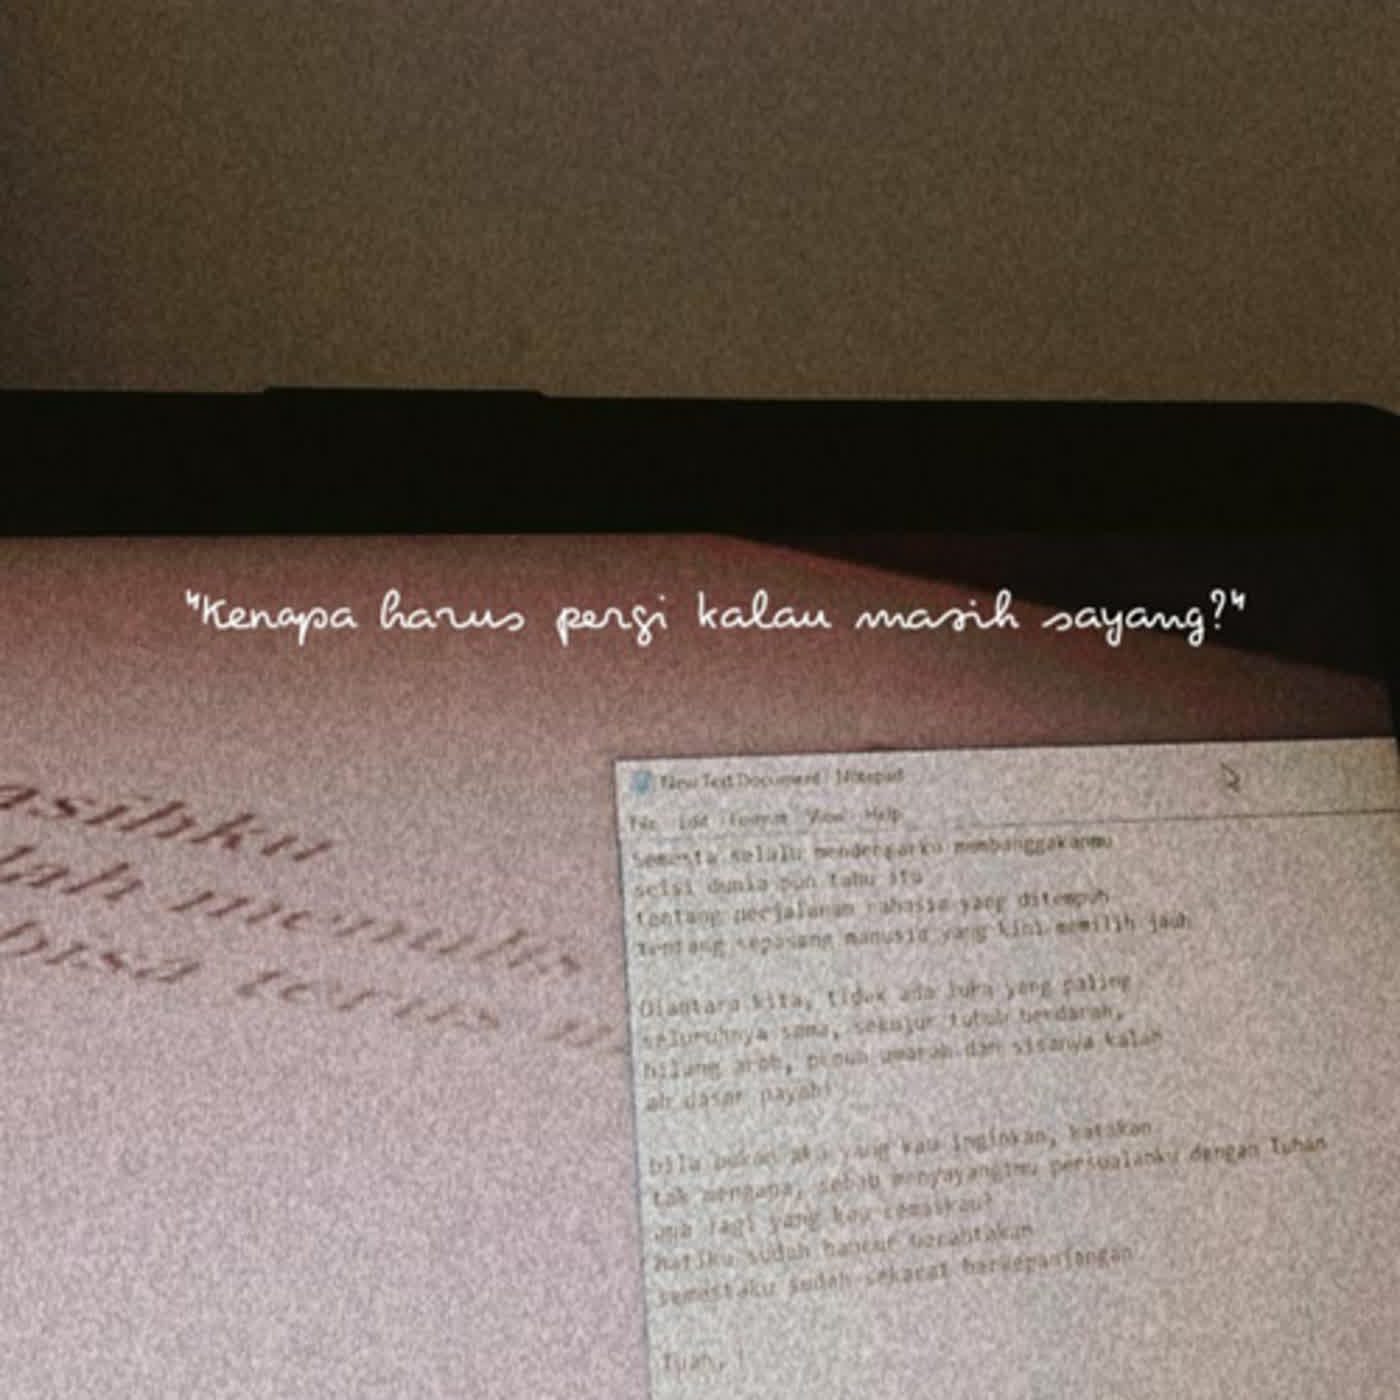 "Kenapa harus pergi kalau masih sayang?"
asihku
lah menulis
bisa terus
New Text Document - Notepad
File Edit Format View Help
Semesta selalu mendengarku membanggakanmu
seisi dunia pun tahu itu
tentang perjalanan rahasia yang ditempuh
tentang sepasang manusia yang kini memilih jauh
Diantara kita, tidak ada luka yang paling
seluruhnya sama, sekujur tubuh berdarah,
hilang arah, penuh amarah dan sisanya kalah
ah dasar payah!
bila bukan aku yang kau inginkan, katakan
tak mengapa, sebab menyayangimu persoalanku dengan Tuhan
apa lagi yang kau
hatiku sudah hancur berantakan
semestaku sudah sekarat berkepanjangan
Tuan,